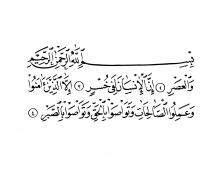 بِسْمِ اللَّهِ الرَّحْمَنِ الرَّحِيمِ
وَالْعَصْرِ ﴿١﴾ إِنَّ الْإِنْسَانَ لَفِي خُسْرٍ ﴿٢﴾ إِلَّا الَّذِينَ ءَامَنُوا
وَعَمِلُوا الصَّالِحَاتِ وَتَوَاصَوْا بِالْحَقِّ وَتَوَاصَوْا بِالصَّبْرِ ﴿٤﴾